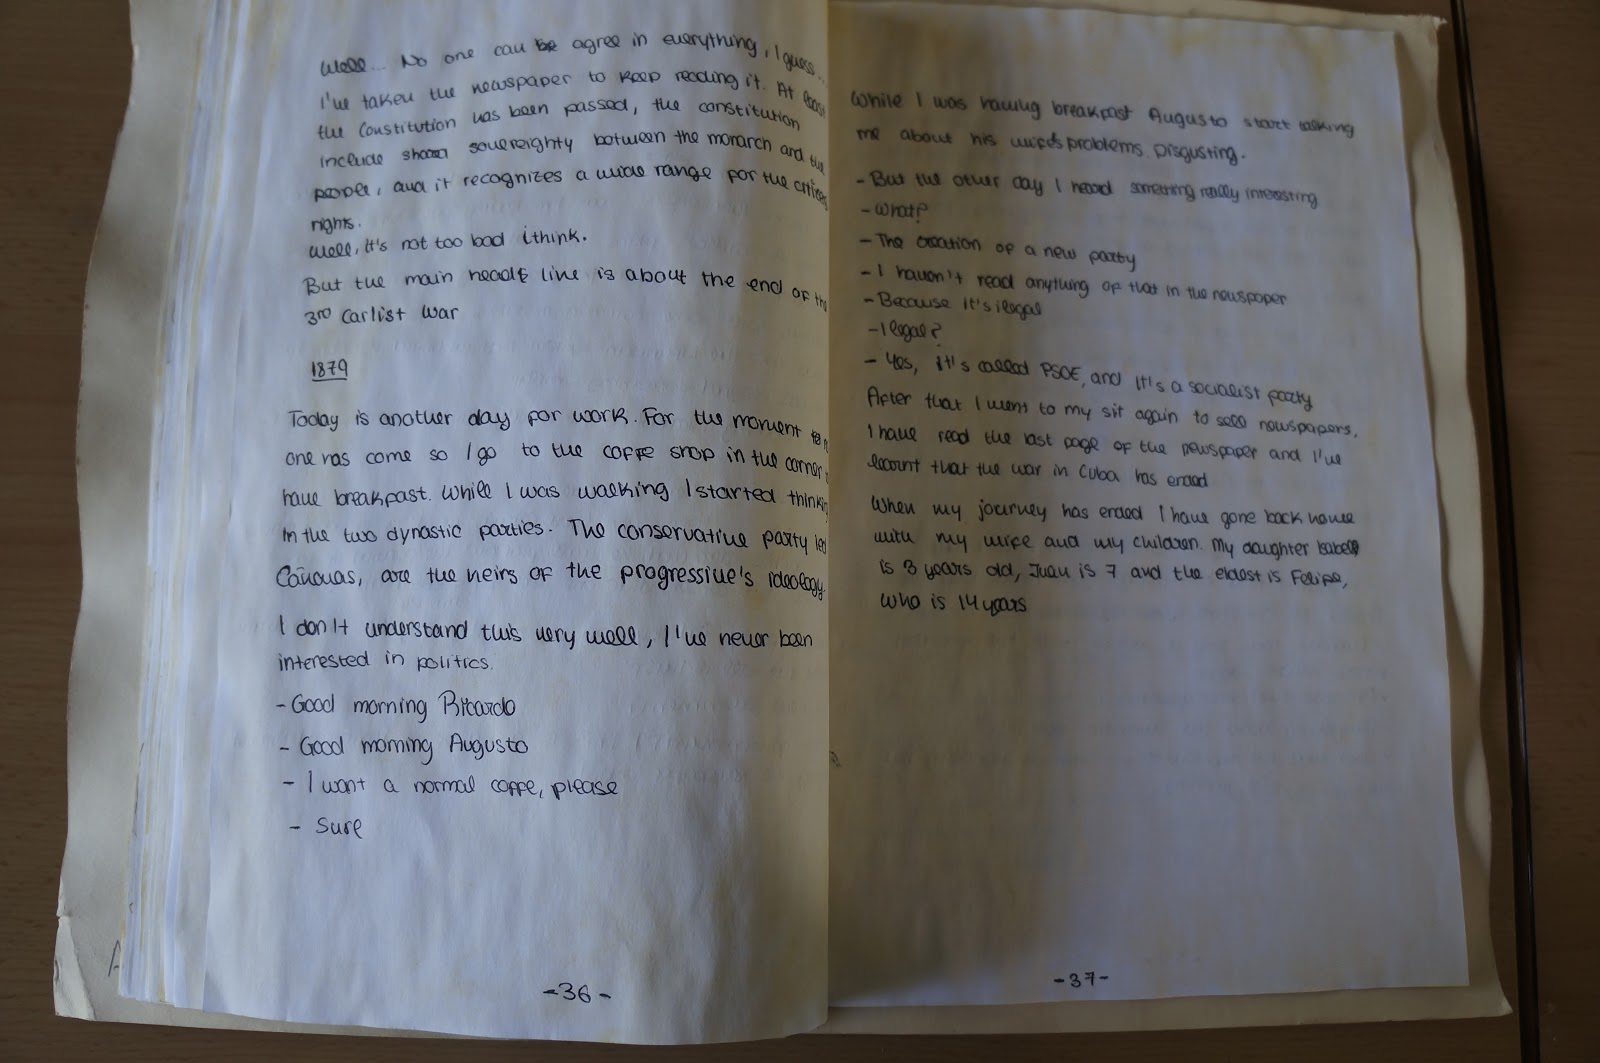 Well... No one can be agree in everything, I guess...
I've taken the newspaper to keep reading it. At least
the Constitution has been passed, the constitution
include shared sovereighty between the monarch and the
people, and it recognizes a wide range for the citizens
rights.
Well, it's not too bad i think.
But the main head line is about the end of the
3rd Carlist War
1879
Today is another day for work. For the moment
one has come so I go to the coffe shop in the corner
have breakfast. While I was walking I started thinking
in the two dynastic parties. The conservative party led
Cánovas, are the heirs of the progressive's ideology.
I don't understand this very well, I've never been
interested in politics.
- Good morning Ricardo
- Good morning Augusto
- I want a normal coffe, please
- Sure
-36-
While I was having breakfast Augusto start talking
me about his wife's problems. Disgusting.
- But the other day I heard something really interesting
- What?
- The creation of a new party
- I haven't read anything of that in the newspaper
- Because it's ilegal
- Ilegal?
- Yes, it's called PSOE, and it's a socialist party
After that I went to my sit again to sell newspapers.
I have read the last page of the newspaper and I've
learnt that the war in Cuba has ended
When my journey has ended I have gone back home
with my wife and my children. My daughter Isabel
is 3 years old, Juan is 7 and the eldest is Felipe,
who is 14 years
-37-